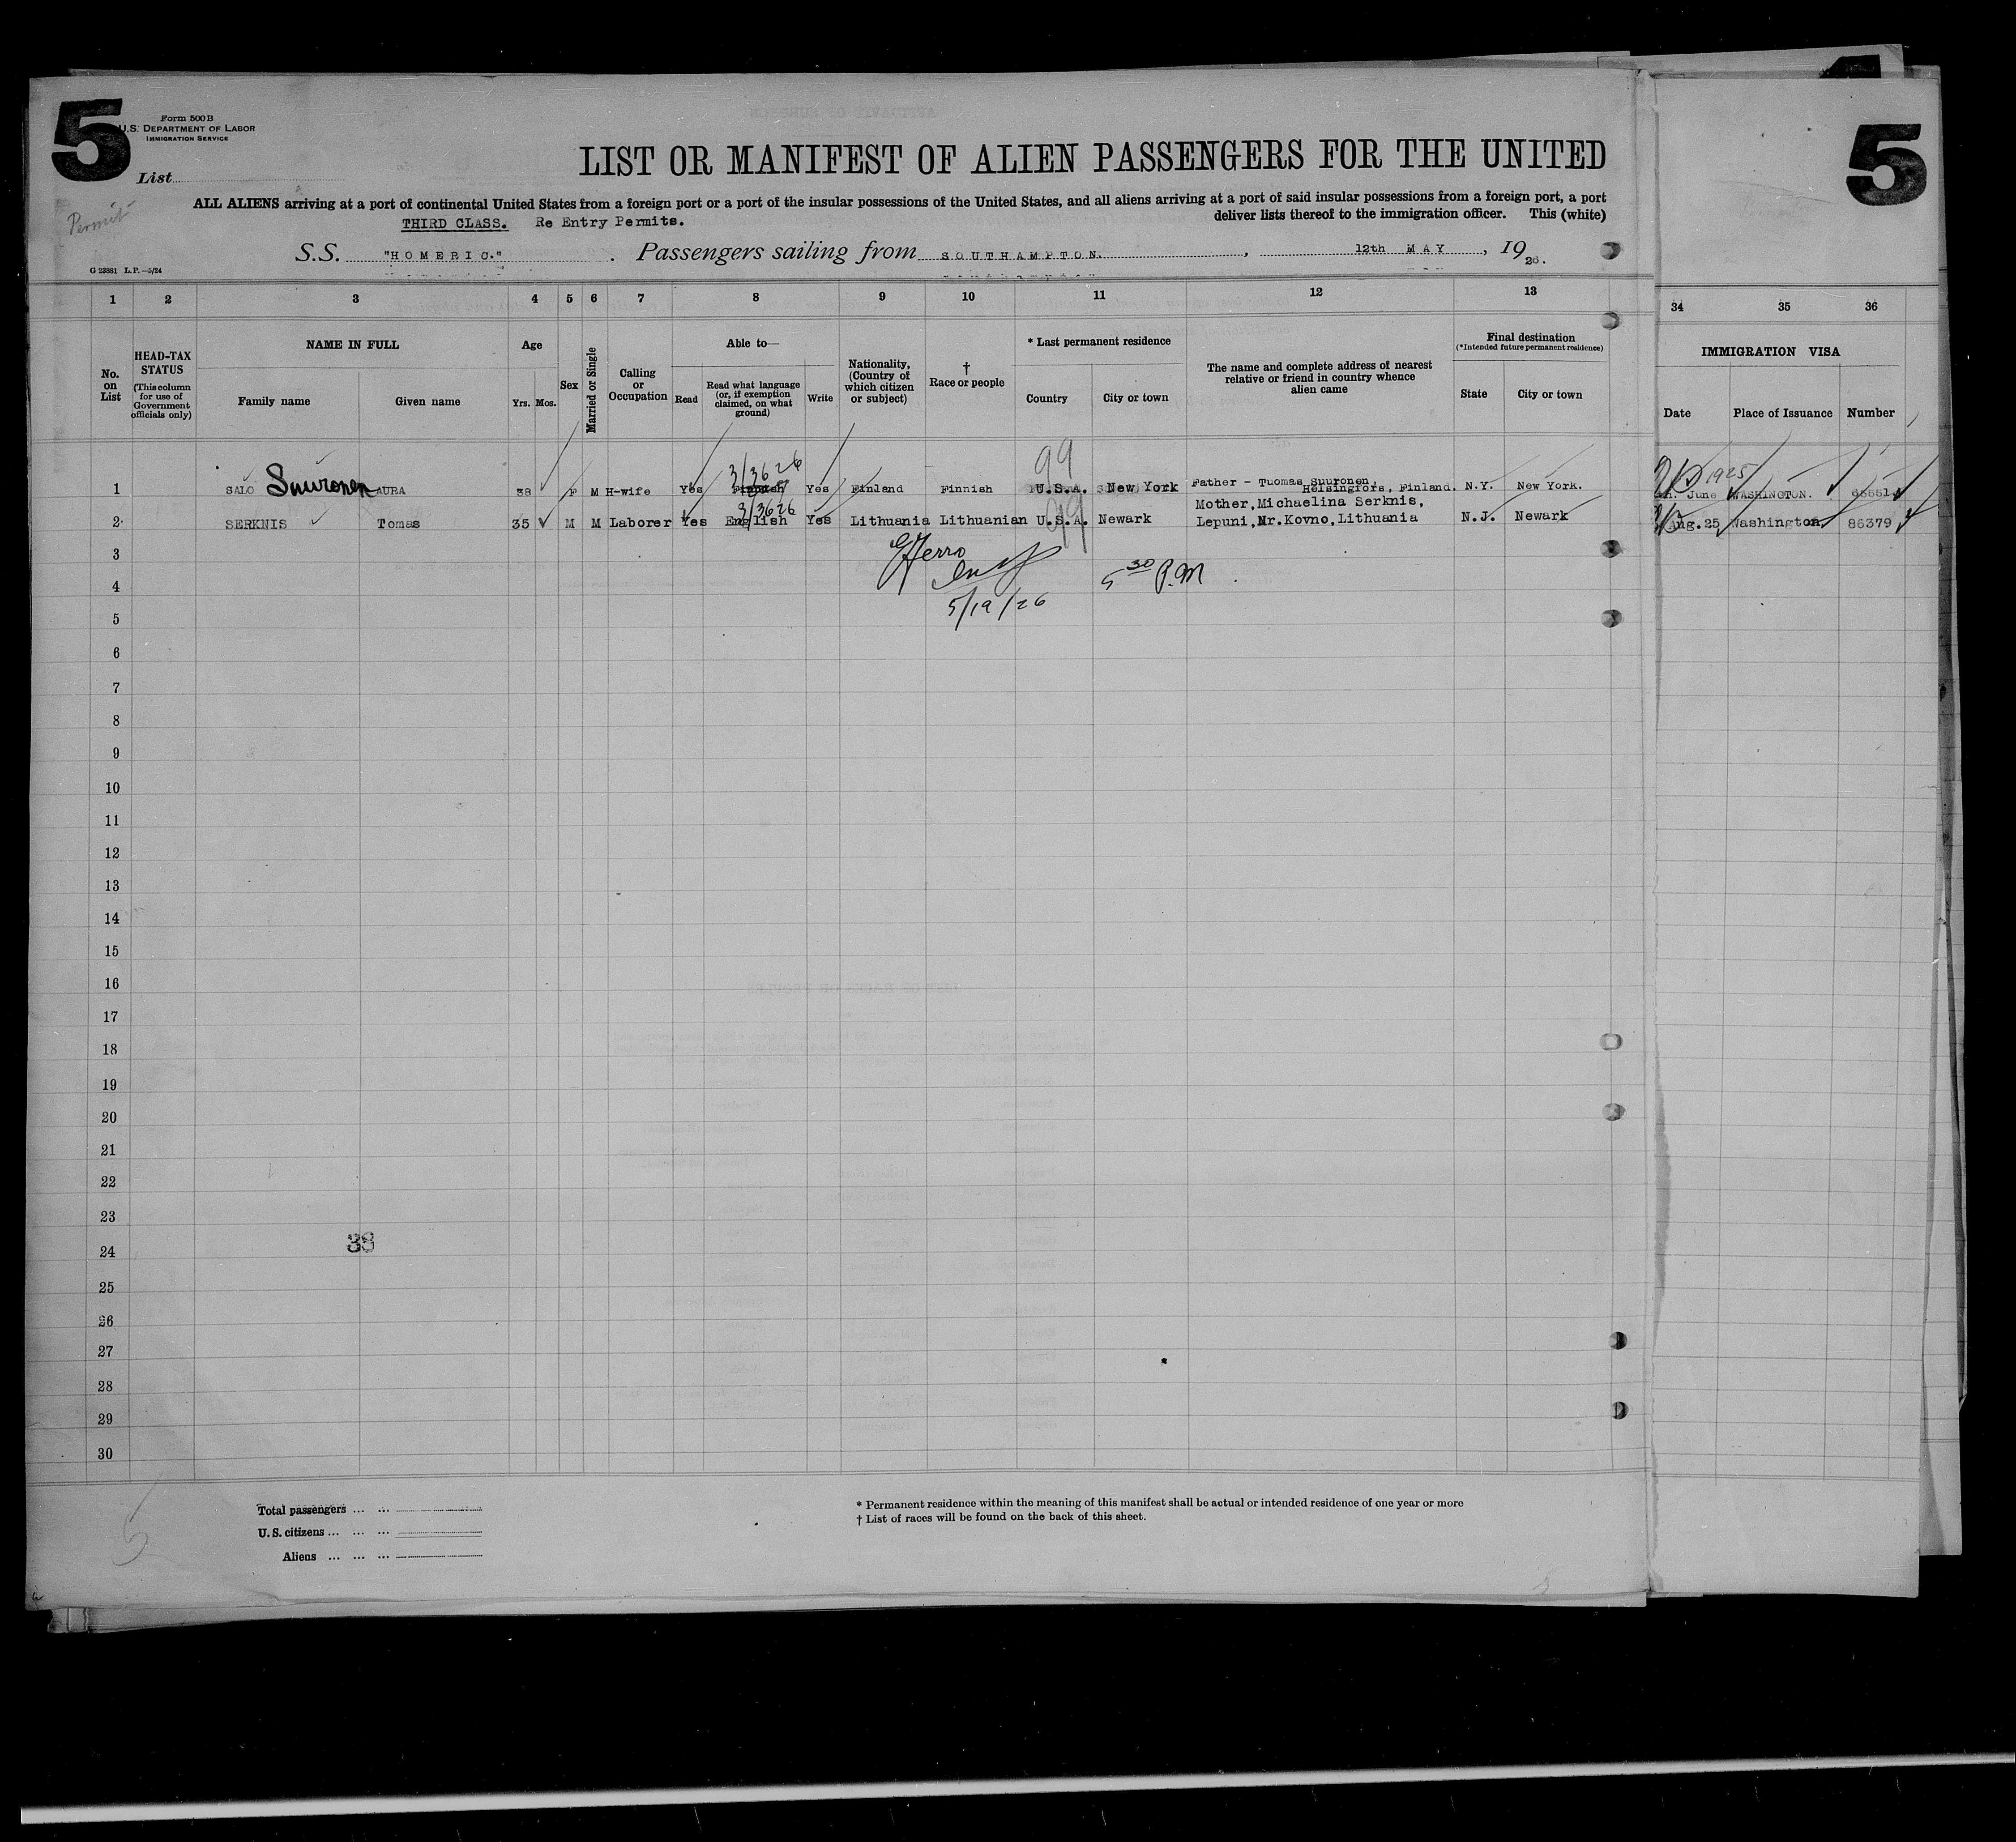 5
Form 500B
U.S. DEPARTMENT OF LABOR
IMMIGRATION SERVICE
List
Permit
LIST OR MANIFEST OF ALIEN PASSENGERS FOR THE UNITED
ALL ALIENS arriving at a port of continental United States from a foreign port or a port of the insular possessions of the United States, and all aliens arriving at a port of said insular possessions from a foreign port, a port
THIRD CLASS. Re Entry Permits. deliver lists thereof to the immigration officer. This (white)
S.S. "HOMERIC." . Passengers sailing from SOUTHAMPTON. , 12th MAY , 19 26.
G 23881 L.P.—5/24
5
1 2 3 4 5 6 7 8 9 10 11 12 13 34 35 36
No. on List
HEAD-TAX STATUS (This column for use of Government officials only)
NAME IN FULL
Family name Given name
Age
Yrs. Mos.
Sex
Married or Single
Calling or Occupation
Able to—
Read Read what language (or, if exemption claimed, on what ground) Write
Nationality, (Country of which citizen or subject)
† Race or people
* Last permanent residence
Country City or town
The name and complete address of nearest relative or friend in country whence alien came
Final destination
(*Intended future permanent residence)
State City or town
IMMIGRATION VISA
Date Place of Issuance Number
3/3626 99 1925
1 SALO Suuronen AURA 38 F M H-wife Yes Finnish Yes Finland Finnish U.S.A. New York Father - Tuomas Suuronen, Helsingfors, Finland. N.Y. New York. June WASHINGTON.
3/3626
2 SERKNIS Tomas 35 M M Laborer Yes English Yes Lithuania Lithuanian U.S.A. Newark Mother, Michaelina Serknis, Lepuni, Nr. Kovno, Lithuania N.J. Newark Aug. 25 Washington 86379
99
3
4 5 30 P.M
5 5/19/26
6
7
8
9
10
11
12
13
14
15
16
17
18
19
20
21
22
23
38
24
25
26
27
28
29
30
Total passengers ... ...
U.S. citizens ... ... ...
Aliens ... ... ...
* Permanent residence within the meaning of this manifest shall be actual or intended residence of one year or more
† List of races will be found on the back of this sheet.
5